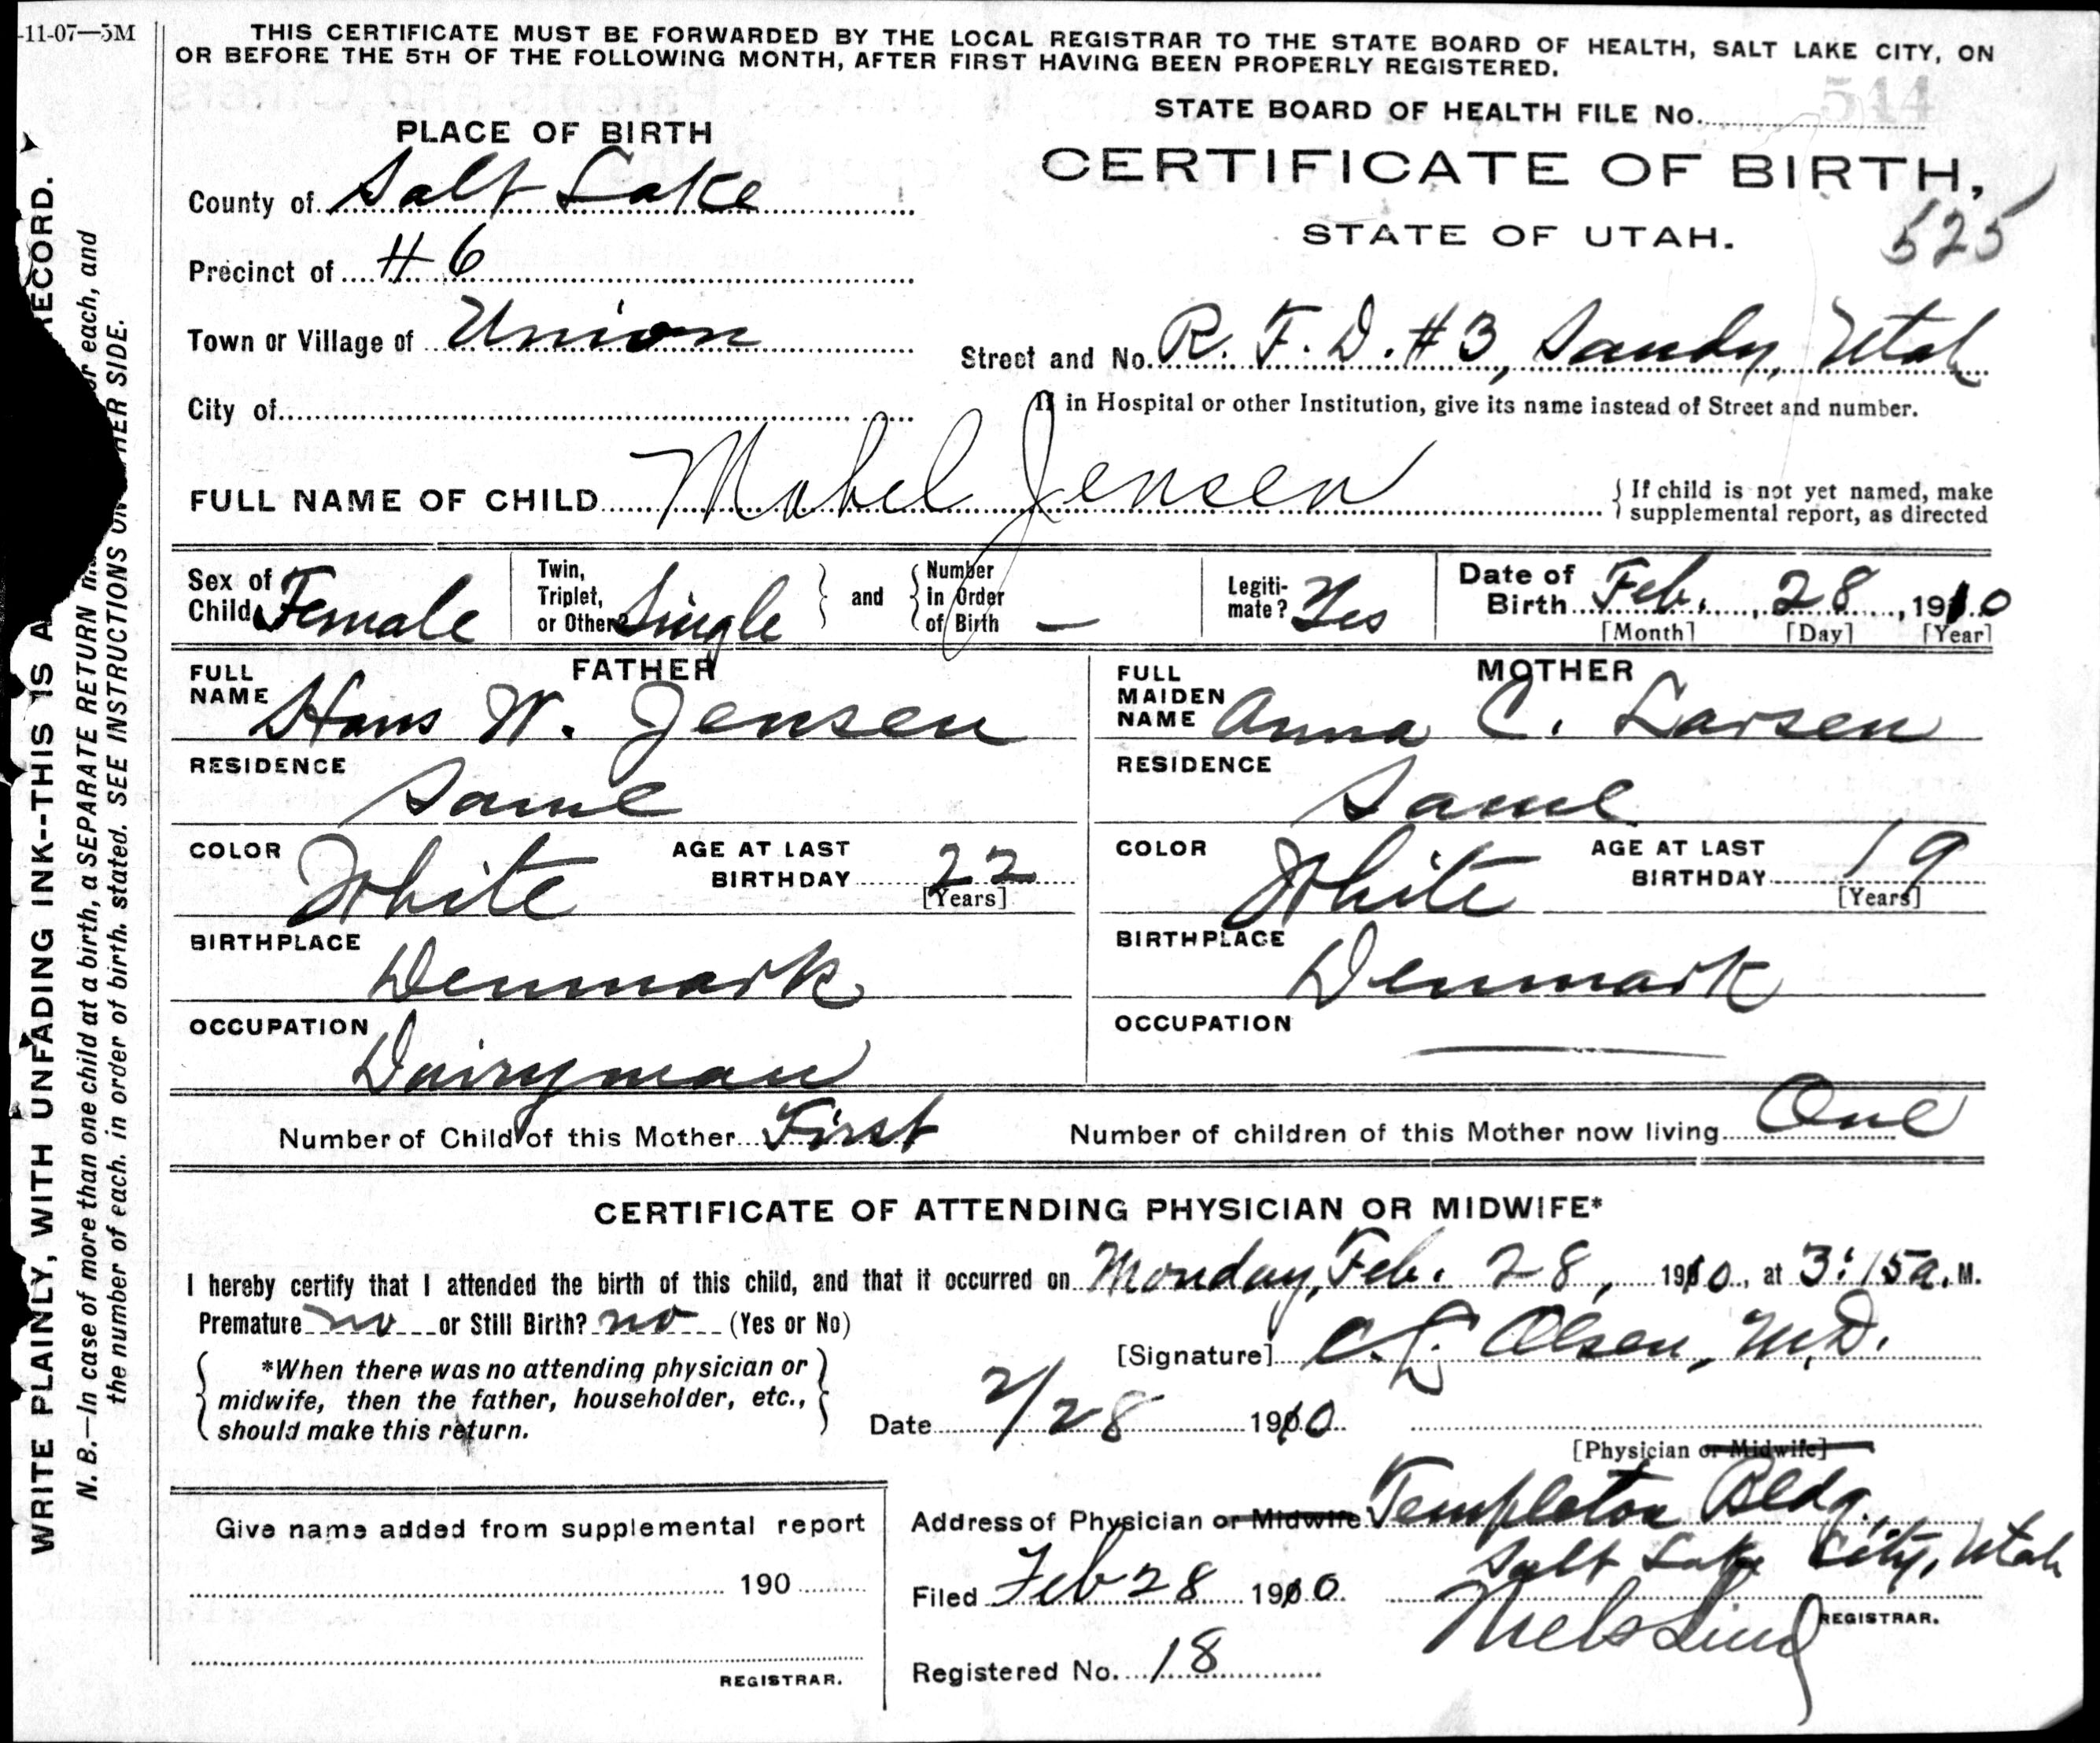 -11-07—5M
THIS CERTIFICATE MUST BE FORWARDED BY THE LOCAL REGISTRAR TO THE STATE BOARD OF HEALTH, SALT LAKE CITY, ON
OR BEFORE THE 5TH OF THE FOLLOWING MONTH, AFTER FIRST HAVING BEEN PROPERLY REGISTERED.
STATE BOARD OF HEALTH FILE No. 544
PLACE OF BIRTH
CERTIFICATE OF BIRTH,
STATE OF UTAH.
525
County of Salt Lake
Precinct of #6
Town or Village of Union
Street and No. R. F. D. #3, Sandy, Utah
City of
If in Hospital or other Institution, give its name instead of Street and number.
FULL NAME OF CHILD Mabel Jensen
If child is not yet named, make
supplemental report, as directed
Sex of Child Female
Twin, Triplet, or Other? Single and Number in Order of Birth —
Legiti-mate? Yes
Date of Birth Feb. , 28 , 1910
[Month] [Day] [Year]
FATHER
FULL NAME Hans W. Jensen
RESIDENCE Same
COLOR White AGE AT LAST BIRTHDAY 22
[Years]
BIRTHPLACE Denmark
OCCUPATION Dairyman
MOTHER
FULL MAIDEN NAME Anna C. Larsen
RESIDENCE Same
COLOR White AGE AT LAST BIRTHDAY 19
[Years]
BIRTHPLACE Denmark
OCCUPATION —
Number of Child of this Mother First Number of children of this Mother now living One
CERTIFICATE OF ATTENDING PHYSICIAN OR MIDWIFE*
I hereby certify that I attended the birth of this child, and that it occurred on Monday, Feb. 28, 1910, at 3:15 a. M.
Premature no or Still Birth? no (Yes or No)
*When there was no attending physician or
midwife, then the father, householder, etc.,
should make this return.
[Signature] C. L. Olsen, M.D.
Date 2/28 1910
[Physician or Midwife]
Address of Physician or Midwife Templeton Bldg.
Salt Lake City, Utah
Filed Feb 28 1910
Niels Lind
REGISTRAR.
Registered No. 18
Give name added from supplemental report
190
REGISTRAR.
WRITE PLAINLY, WITH UNFADING INK--THIS IS A RECORD.
N. B.—In case of more than one child at a birth, a SEPARATE RETURN for each, and
the number of each, in order of birth, stated. SEE INSTRUCTIONS ON OTHER SIDE.